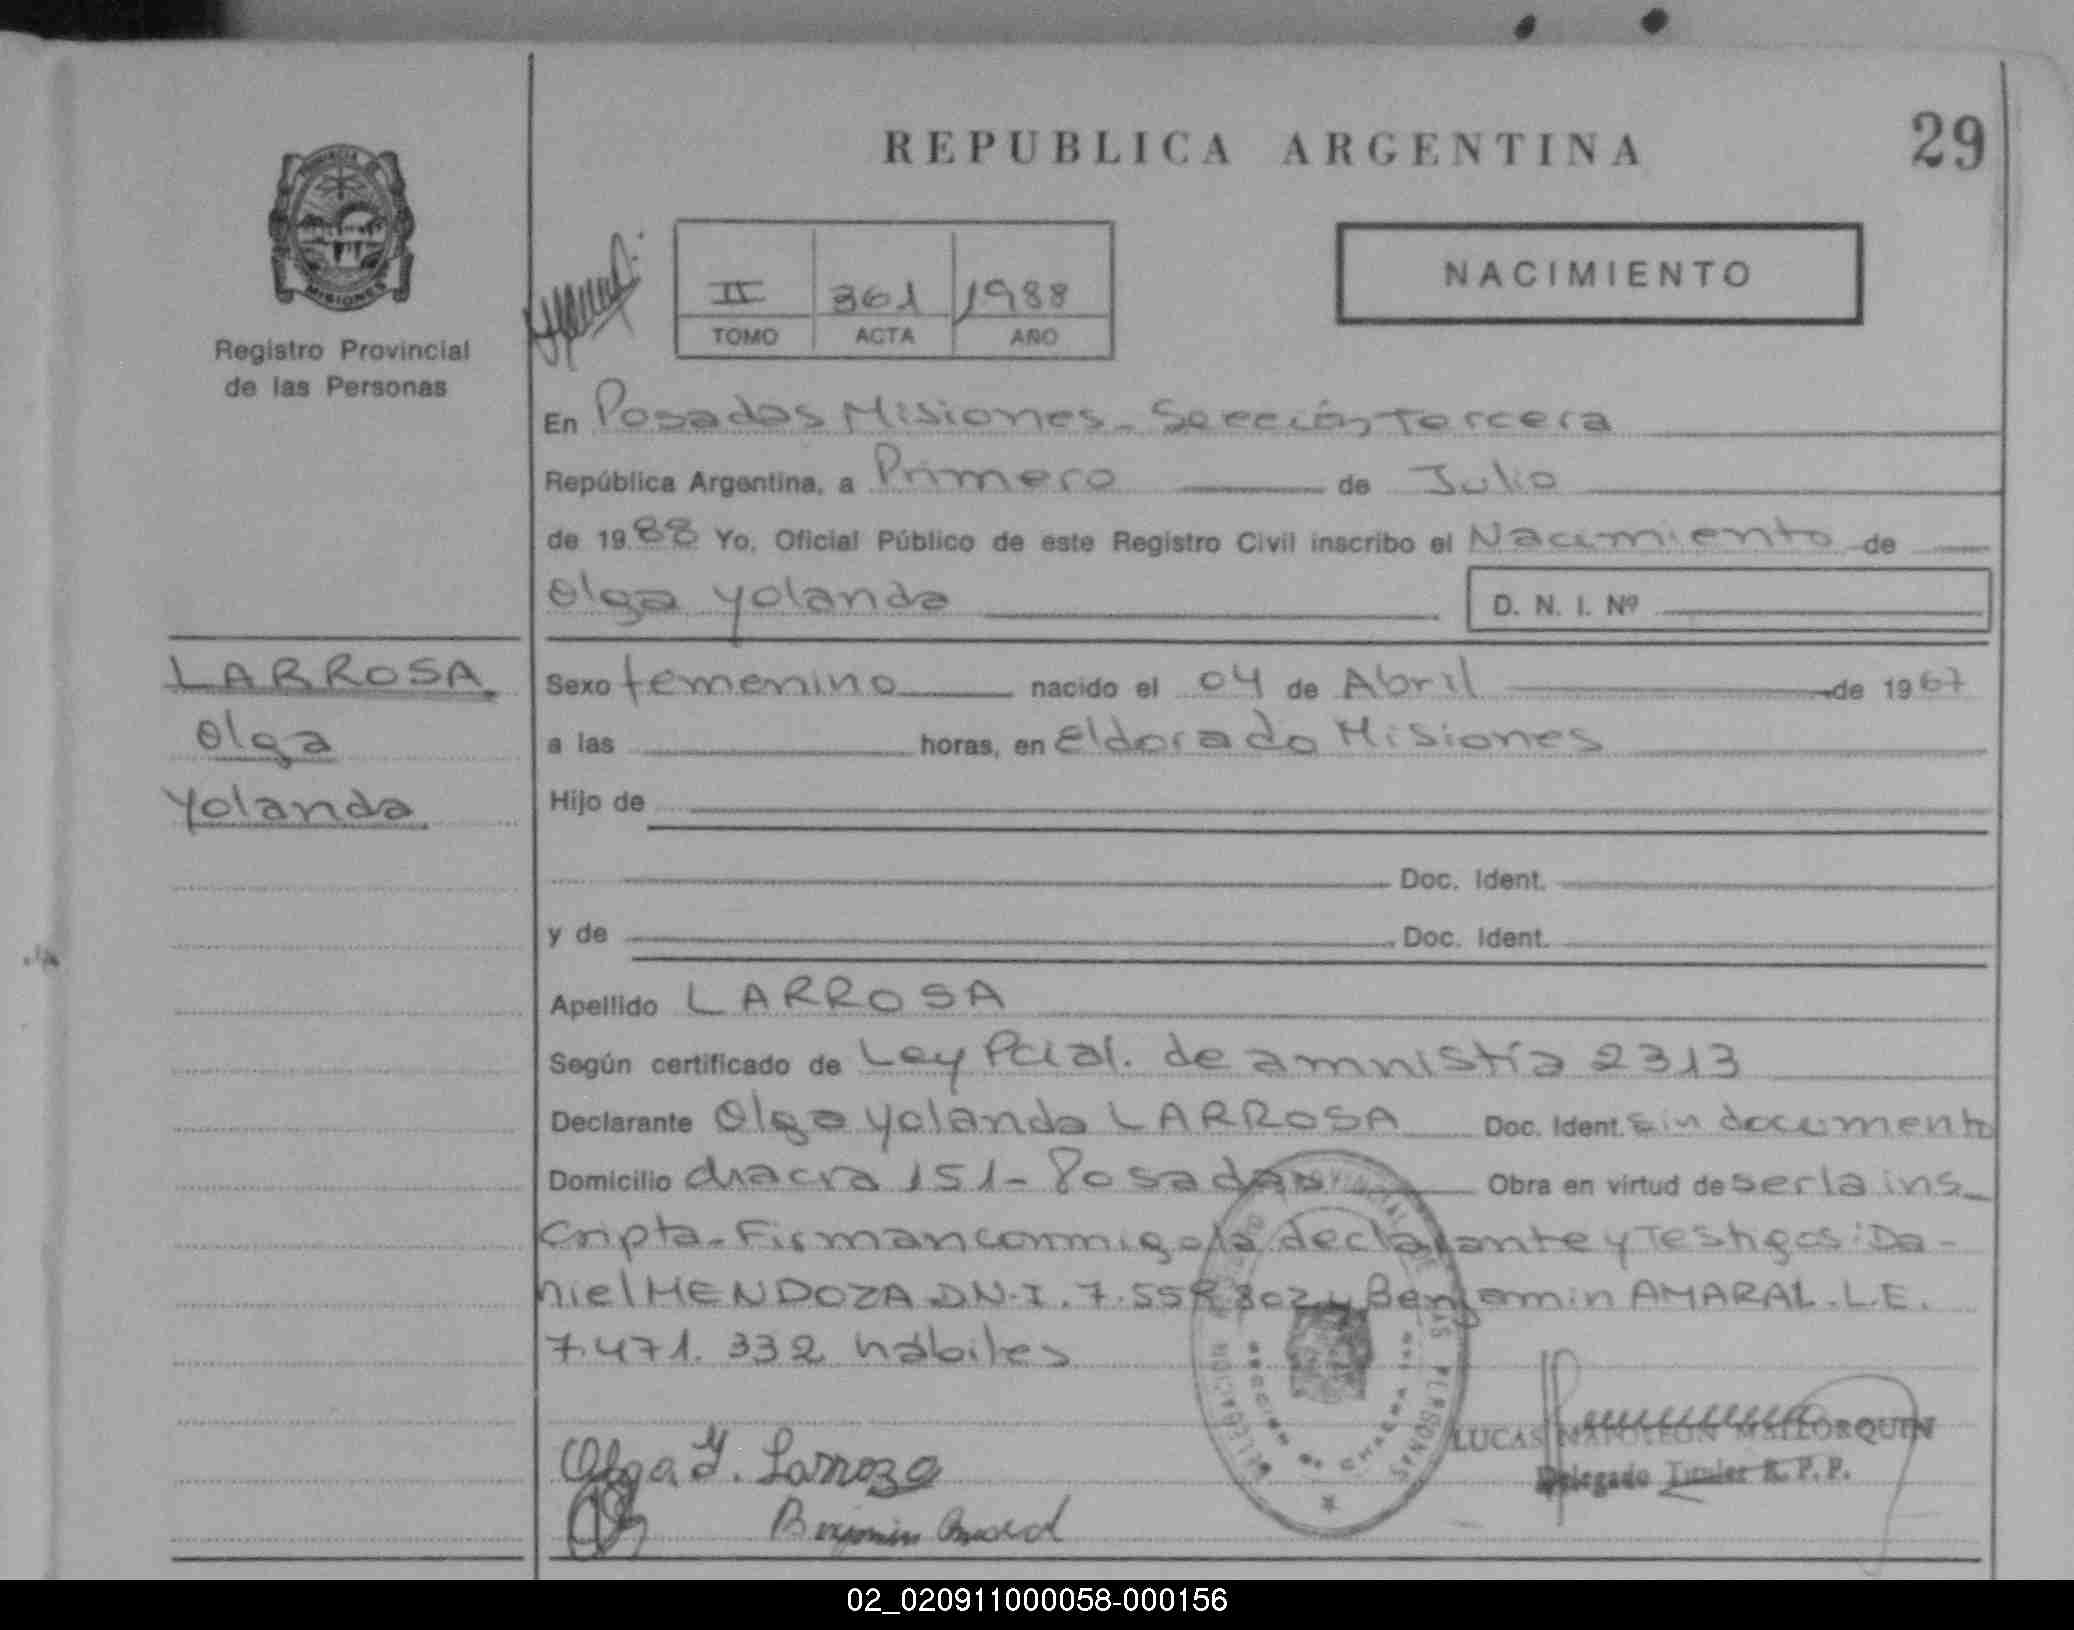 REPUBLICA ARGENTINA
29
PROVINCIA
MISIONES
Registro Provincial
de las Personas
II 361 1988
TOMO ACTA AÑO
NACIMIENTO
En Posadas Misiones - Sección Tercera
República Argentina, a Primero de Julio
de 1988 Yo, Oficial Público de este Registro Civil inscribo el Nacimiento de
Olga Yolanda
D. N. I. Nº
LARROSA
Olga
Yolanda
Sexo femenino nacido el 04 de Abril de 1967
a las horas, en Eldorado Misiones
Hijo de
Doc. Ident.
y de Doc. Ident.
Apellido LARROSA
Según certificado de Ley Pcial. de amnistía 2313
Declarante Olga Yolanda LARROSA Doc. Ident. sin documento
Domicilio chacra 151 - Posadas Obra en virtud de ser la ins_
cripta - Firman conmigo la declarante y Testigos: Da-
niel MENDOZA D.N.I. 7.558.802 y Benjamin AMARAL. L.E.
7.471.332 hábiles
Olga Y. Larroza
Benjamin Amaral
LUCAS NAPOLEON MALLORQUIN
Delegado Titular R. P. P.
02_020911000058-000156